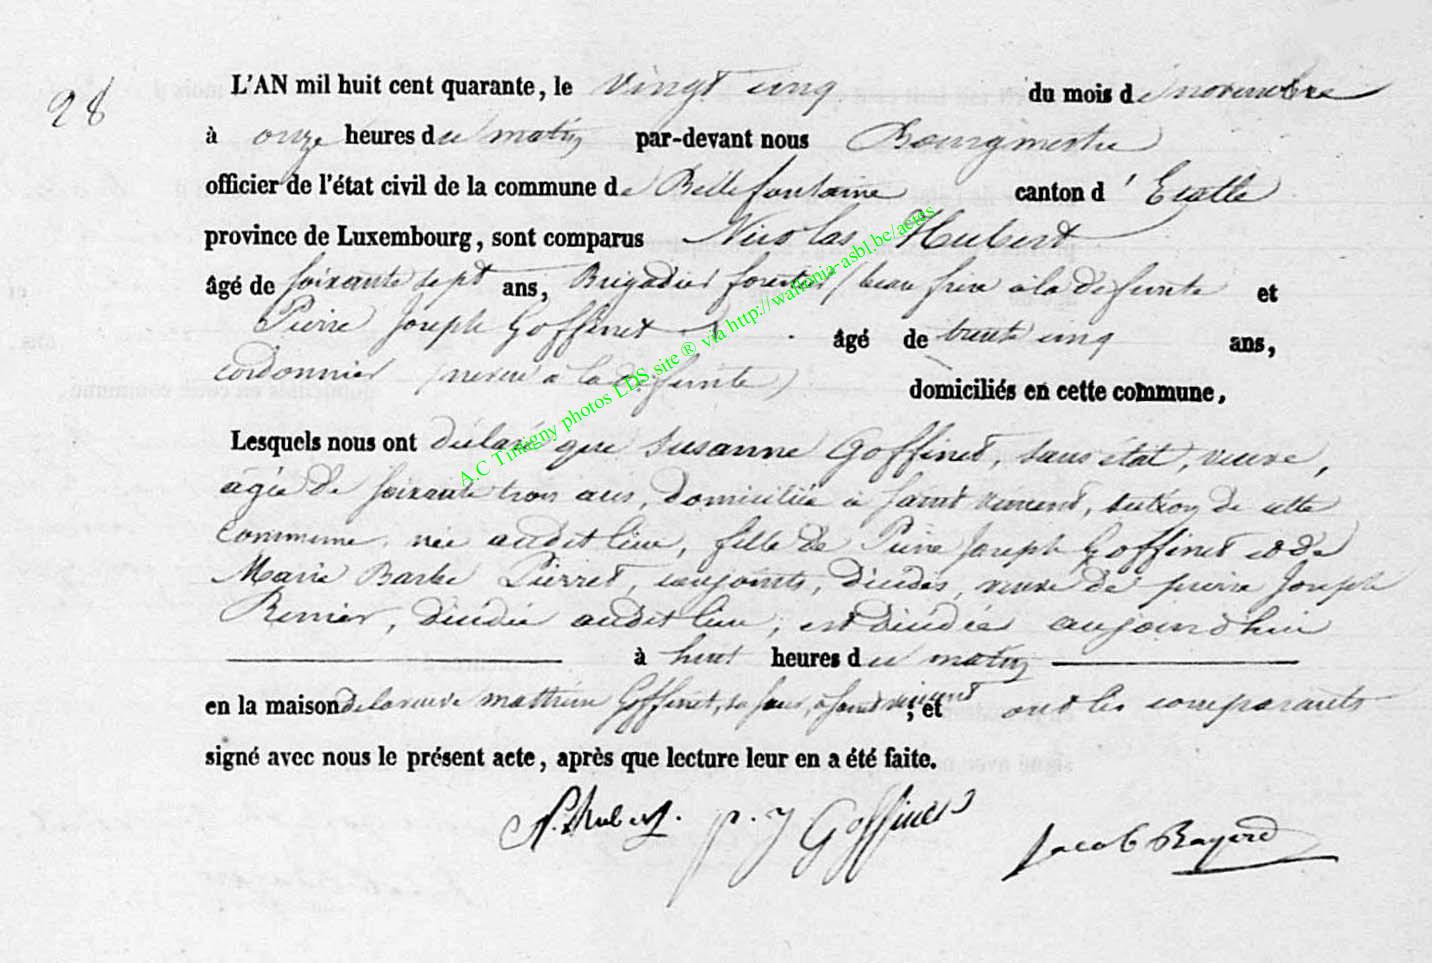 28
L'AN mil huit cent quarante, le vingt cinq du mois de novembre
à onze heures du matin par-devant nous Bourgmestre
officier de l'état civil de la commune de Bellefontaine canton d'Etalle
province de Luxembourg, sont comparus Nicolas Hubert
âgé de soixante sept ans, Brigadier forestier (beau frère à la défunte et
Pierre Joseph Goffinet âgé de trente cinq ans,
cordonnier (neveu à la défunte) domiciliés en cette commune,
Lesquels nous ont déclaré que Susanne Goffinet, sans état, veuve,
agée de soixante trois ans, domiciliée à saint vincent, section de cette
commune, née audit lieu, fille de Pierre Joseph Goffinet et de
Marie Barbe Pierret, conjoints, décédés, veuve de pierre Joseph
Renier, décédé audit lieu, est décédée aujourd'hui
à huit heures du matin
en la maison de la veuve mathieu Goffinet, sa sœur, à saint vincent, et ont les comparants
signé avec nous le présent acte, après que lecture leur en a été faite.
N. Hubert. p. J Goffinet Jacob Bayard
A.C Tintigny photos LDS site ® via http://wallonia-asbl.be/actes